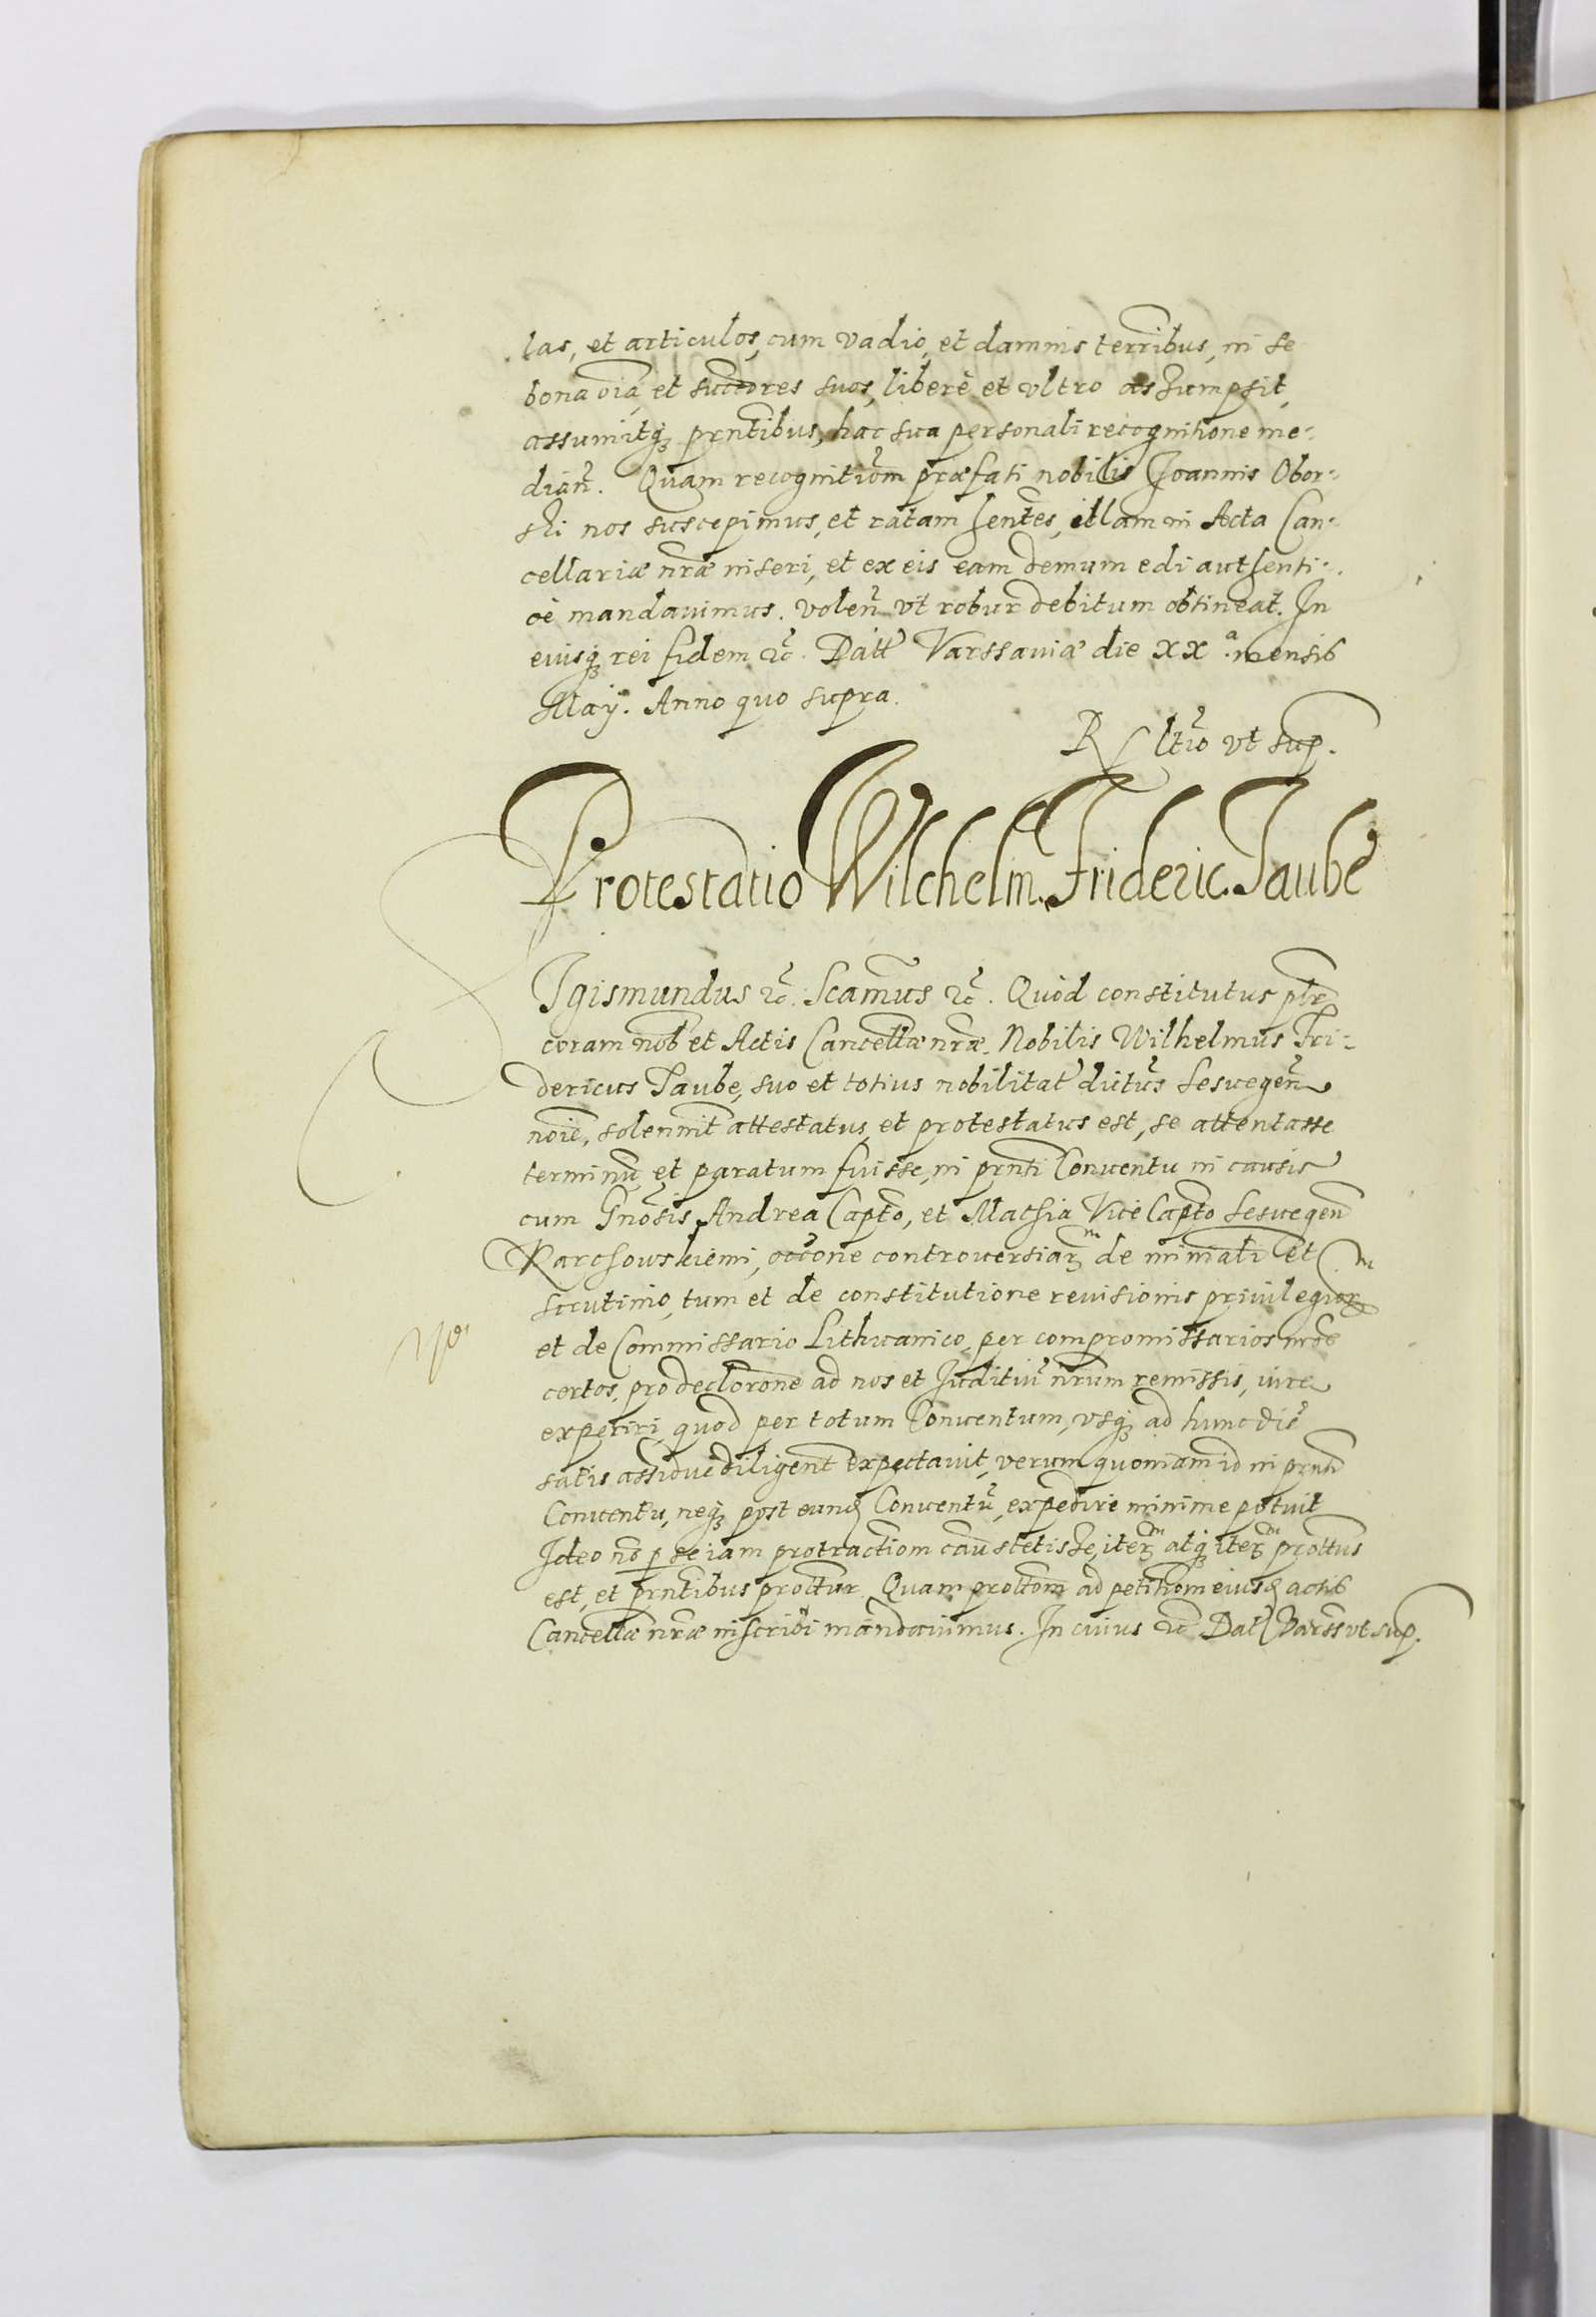 las, et articulos, cum vadio, et damnis terribus, in se
bona oia, et succores suos, liberè et vltro assumpsit,
assumitq; prntibus, hac sua personali recognitione me-
dian. Quam recognitiom præfati nobilis Joannis Obor-
ski nos suscepimus, et ratam hentes, illam in Acta Can-
cellariæ nræ inseri, et ex eis eam demum edi authenti-
cè mandauimus. volen vt robur debitum obtineat. In
euisq; rei fidem etc. Datt Varssauiæ die XX a. mensis
May. Anno quo supra.
R ltio vt sup.
Protestatio Wilchelm. Frideric. Taube
Sigismundus etc. Scamus etc. Quòd constitutus pltr
coram nob et Actis Cancellæ nræ. Nobilis Wilhelmus Fri-
dericus Taube, suo et totius nobilitat dictus Sesuegen
noie, solennit attestatus, et protestatus est, se attentasse
terminu et paratum fuisse, in prnti Conuentu in causis
cum Gnosis Andrea Capto, et Mathia Vice Capto Sesuegen
Karchowskiemi, occone controuersiar de minali et
scrutinio, tum et de constitutione reuisionis priuilegior
et de Commissario Lithuanico, per compromissarios inde
certos, pro declorone ad nos et Juditiu nrum remissis, iure
experiri, quod per totum Conuentum, vsq; ad hunc die
satis assidue diligent expectauit, verum quoniam id in prnti
Conuentu, neq; post eund Conuentu, expedire minime potuit
Ideo no p se iam protractiom cau stetisse, iter atq; iter prottus
est, et prntibus prottur. Quam prottom ad petitiom eiusd actis
Cancellæ nræ inscribi mandauimus. In cuius etc Dat Varss vt sup.